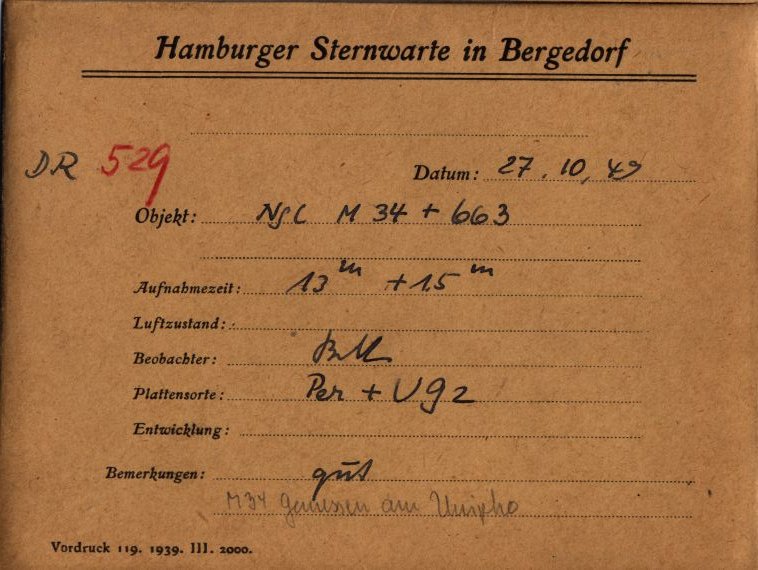 Hamburger Sternwarte in Bergedorf
DR 529
Datum: 27. 10. 49
Objekt: NGC M 34 + 663
Aufnahmezeit: 13 m + 15 m
Luftzustand:
Beobachter:
Plattensorte: Per + UG 2
Entwicklung:
Bemerkungen: gut
M34 gemessen am
Vordruck 119. 1939. III. 2000.